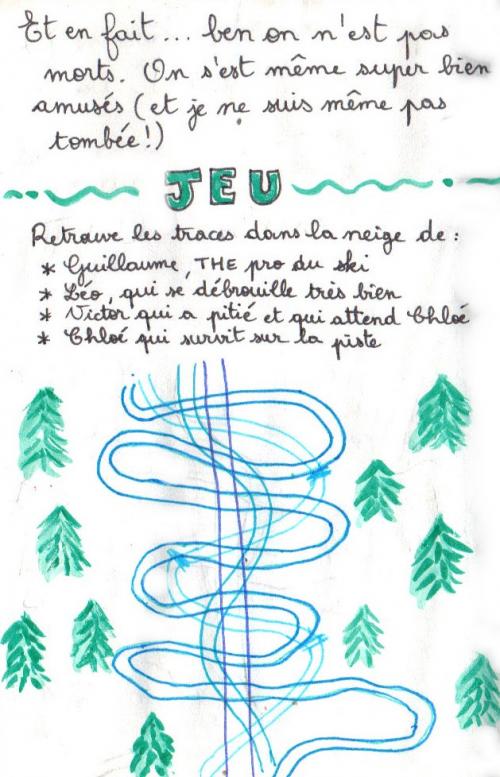 Et en fait... ben on n'est pas
morts. On s'est même super bien
amusés (et je ne suis même pas
tombée!)
JEU
Retrouve les traces dans la neige de :
* Guillaume, THE pro du ski
* Léo, qui se débrouille très bien
* Victor qui a pitié et qui attend Chloé
* Chloé qui survit sur la piste